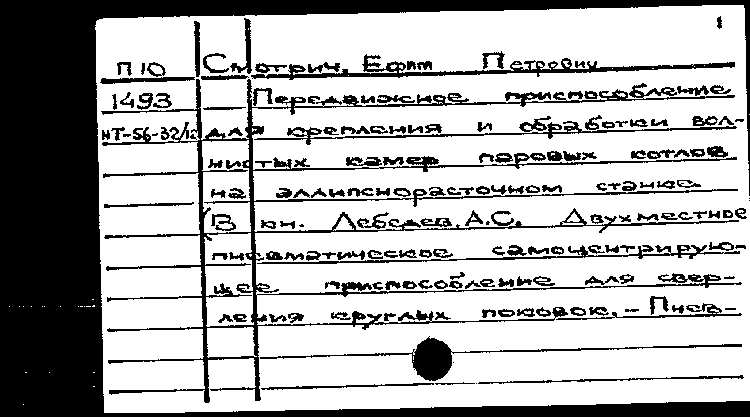 1
П 10 Смотрич, Ефим Петрович
1493 Передвижное приспособление
НТ-56-32/12 для крепления и обработки вол-
нистых камер паровых котлов
на эллипснорасточном станке.
(В кн. Лебедев, А.С. Двухместное
пневматическое самоцентрирую-
щее приспособление для свер-
ления круглых поковок. – Пнев-